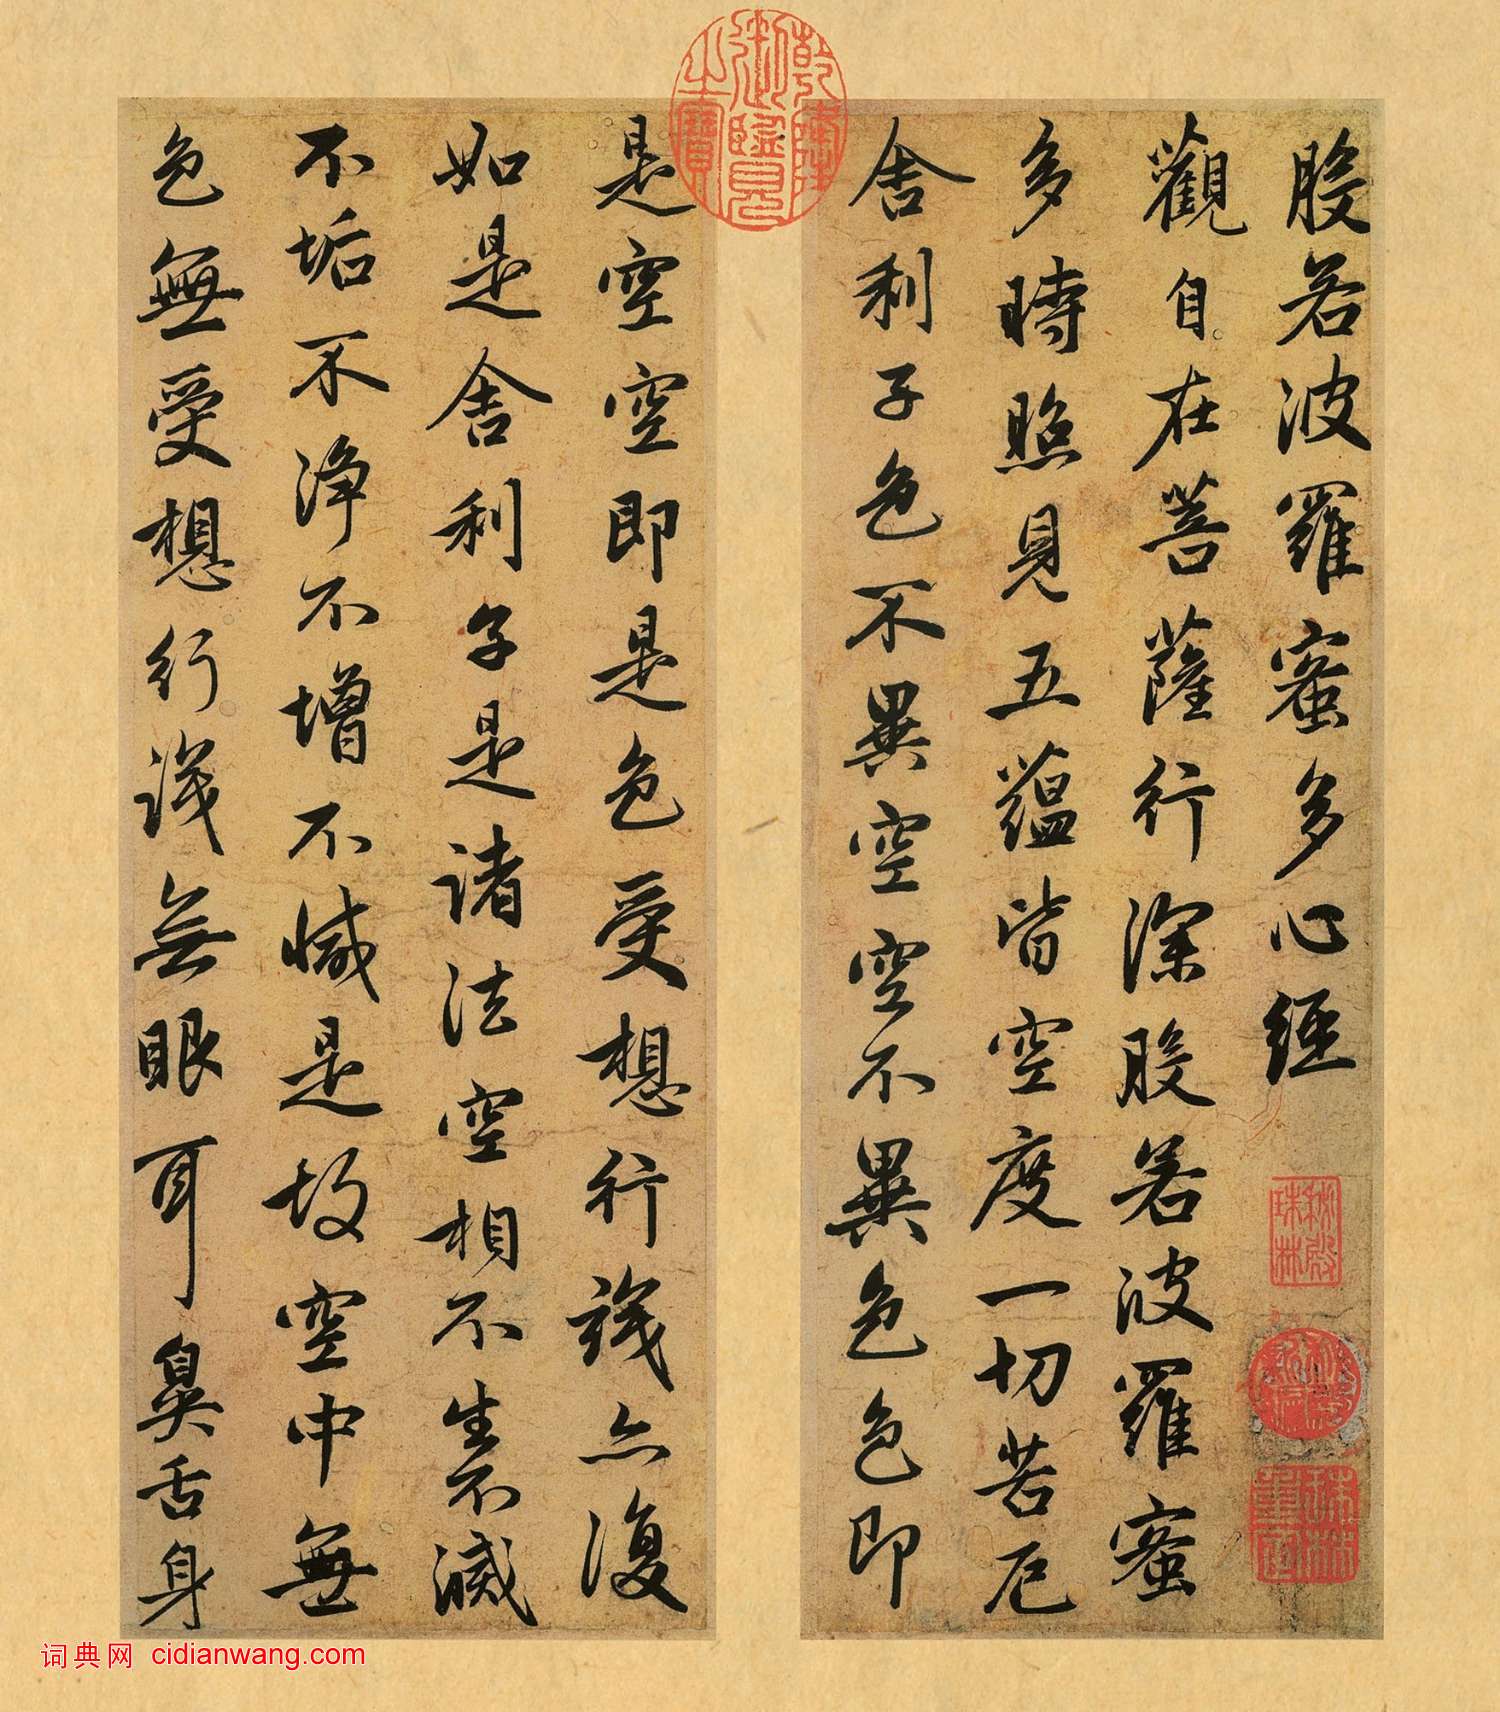 乾隆御覽之寶
般若波羅蜜多心經
秘殿珠林
秘殿新編
珠林重定
觀自在菩薩行深般若波羅蜜
多時照見五蘊皆空度一切苦厄
舍利子色不異空空不異色色即
是空空即是色受想行識亦復
如是舍利子是諸法空相不生不滅
不垢不淨不增不減是故空中無
色無受想行識無眼耳鼻舌身
词典网 cidianwang.com